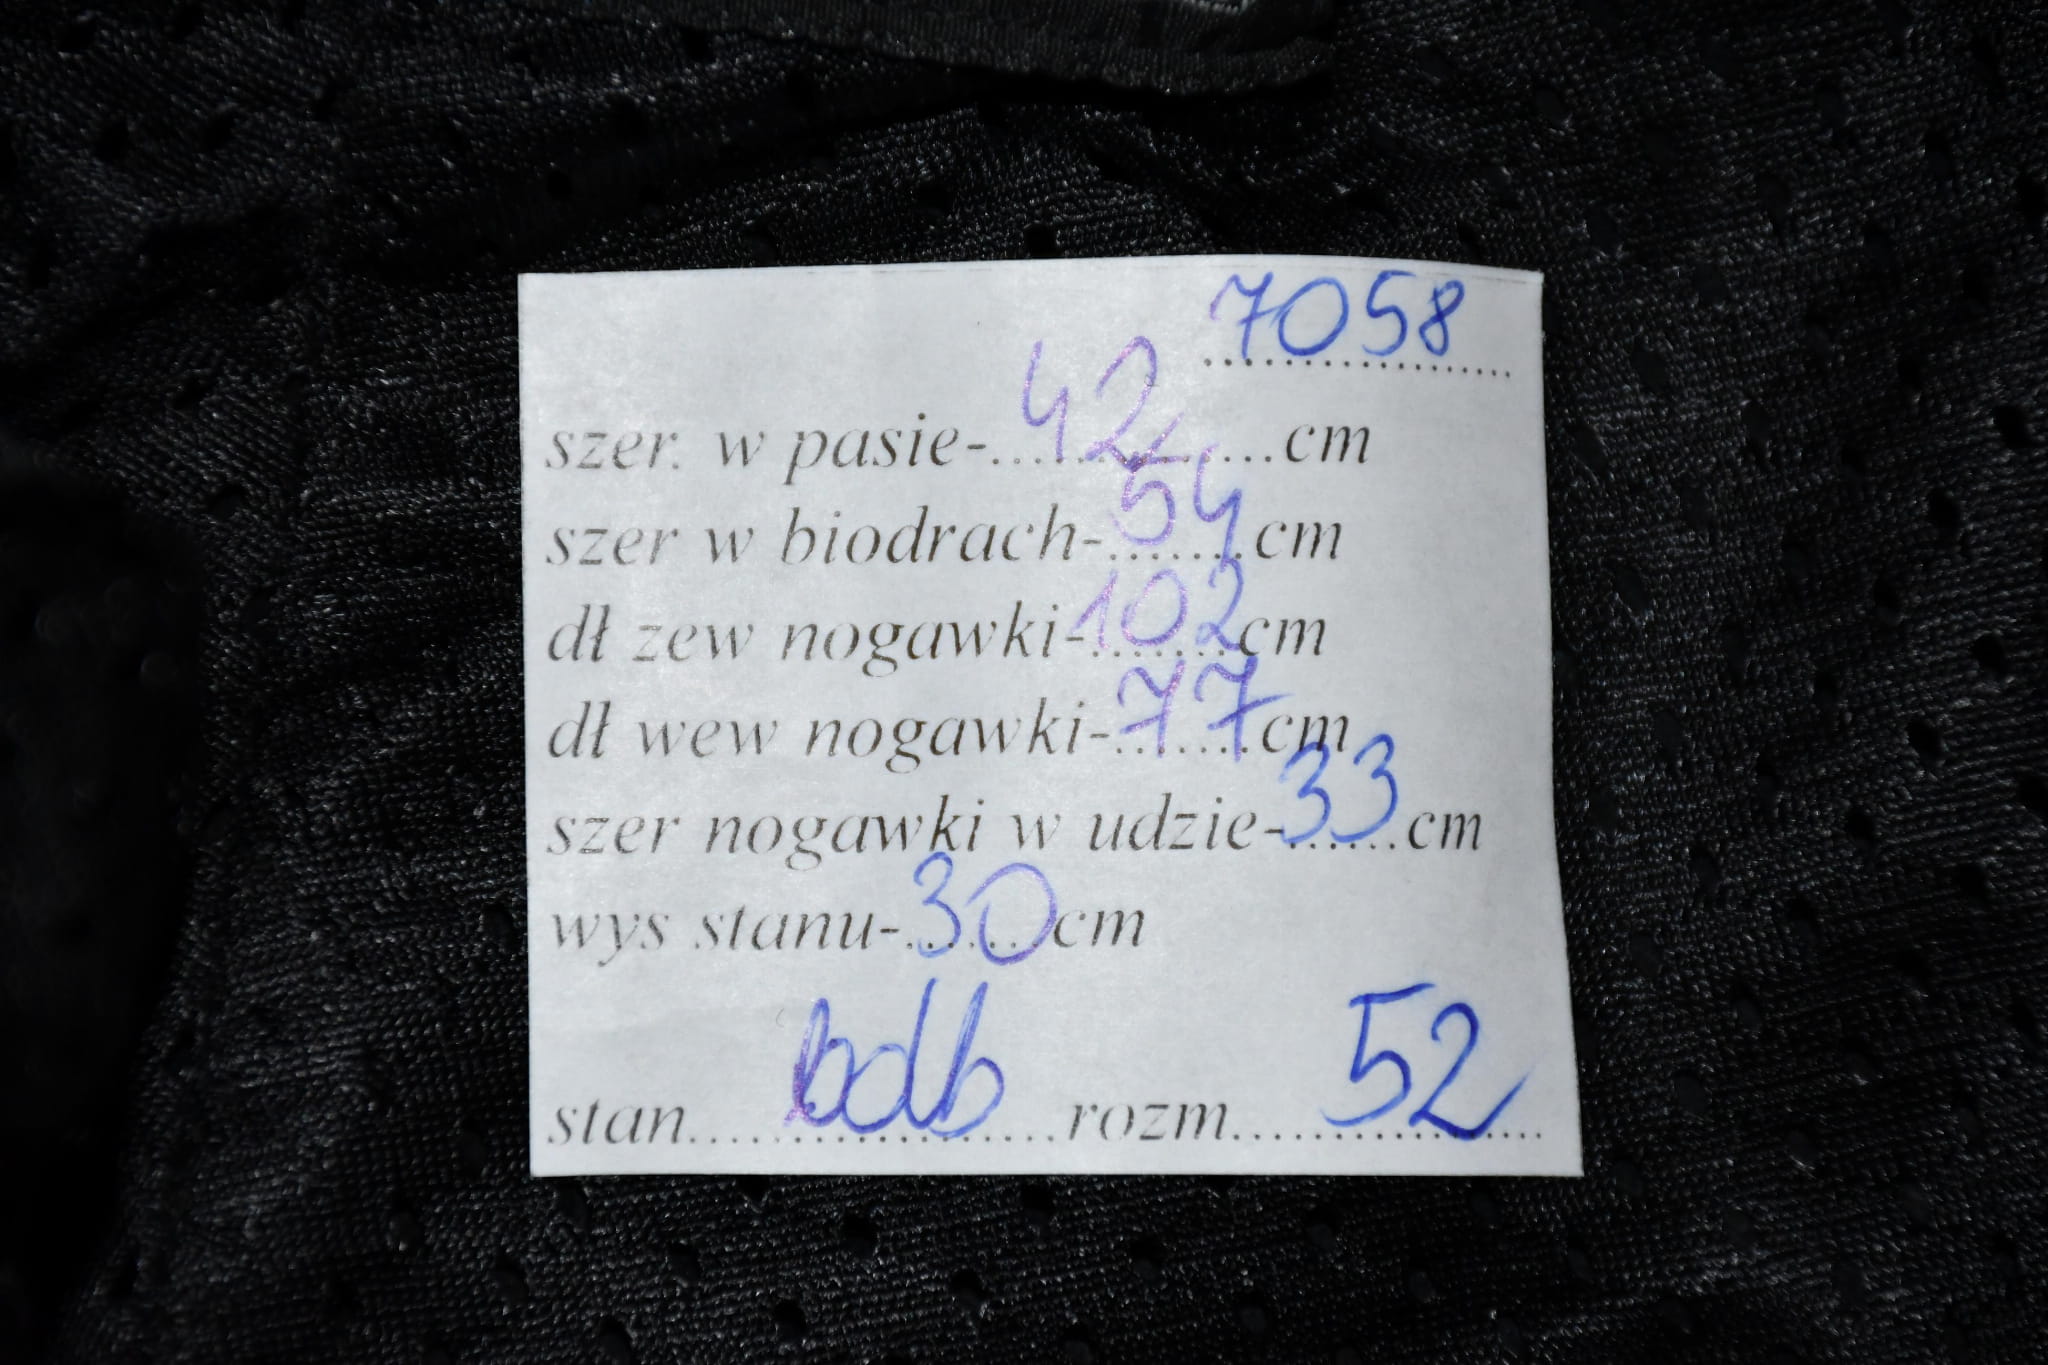 7058
szer. w pasie-...42...cm
szer w biodrach-.54.cm
dł zew nogawki-.102.cm
dł wew nogawki-.77.cm
szer nogawki w udzie-.33.cm
wys stanu-.30.cm
stan....bdb....rozm....52....